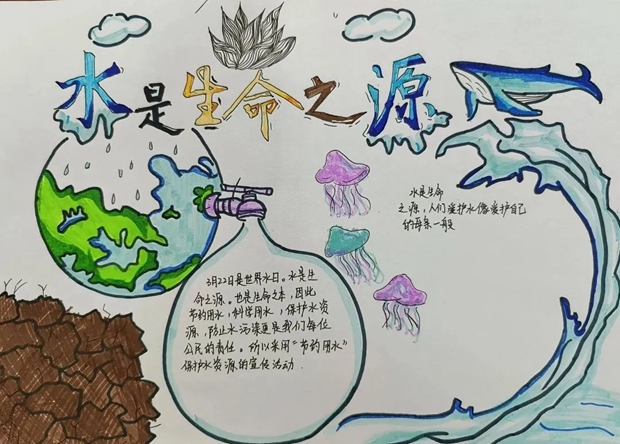 水是生命之源
水是生命
之源，人们爱护水像爱护自己
的母亲一般
3月22日是世界水日。水是生
命之源。也是生命之本，因此
节约用水，科学用水，保护水资
源，防止水污染更是我们每位
公民的责任。所以采用“节约用水”
保护水资源的宣传活动.